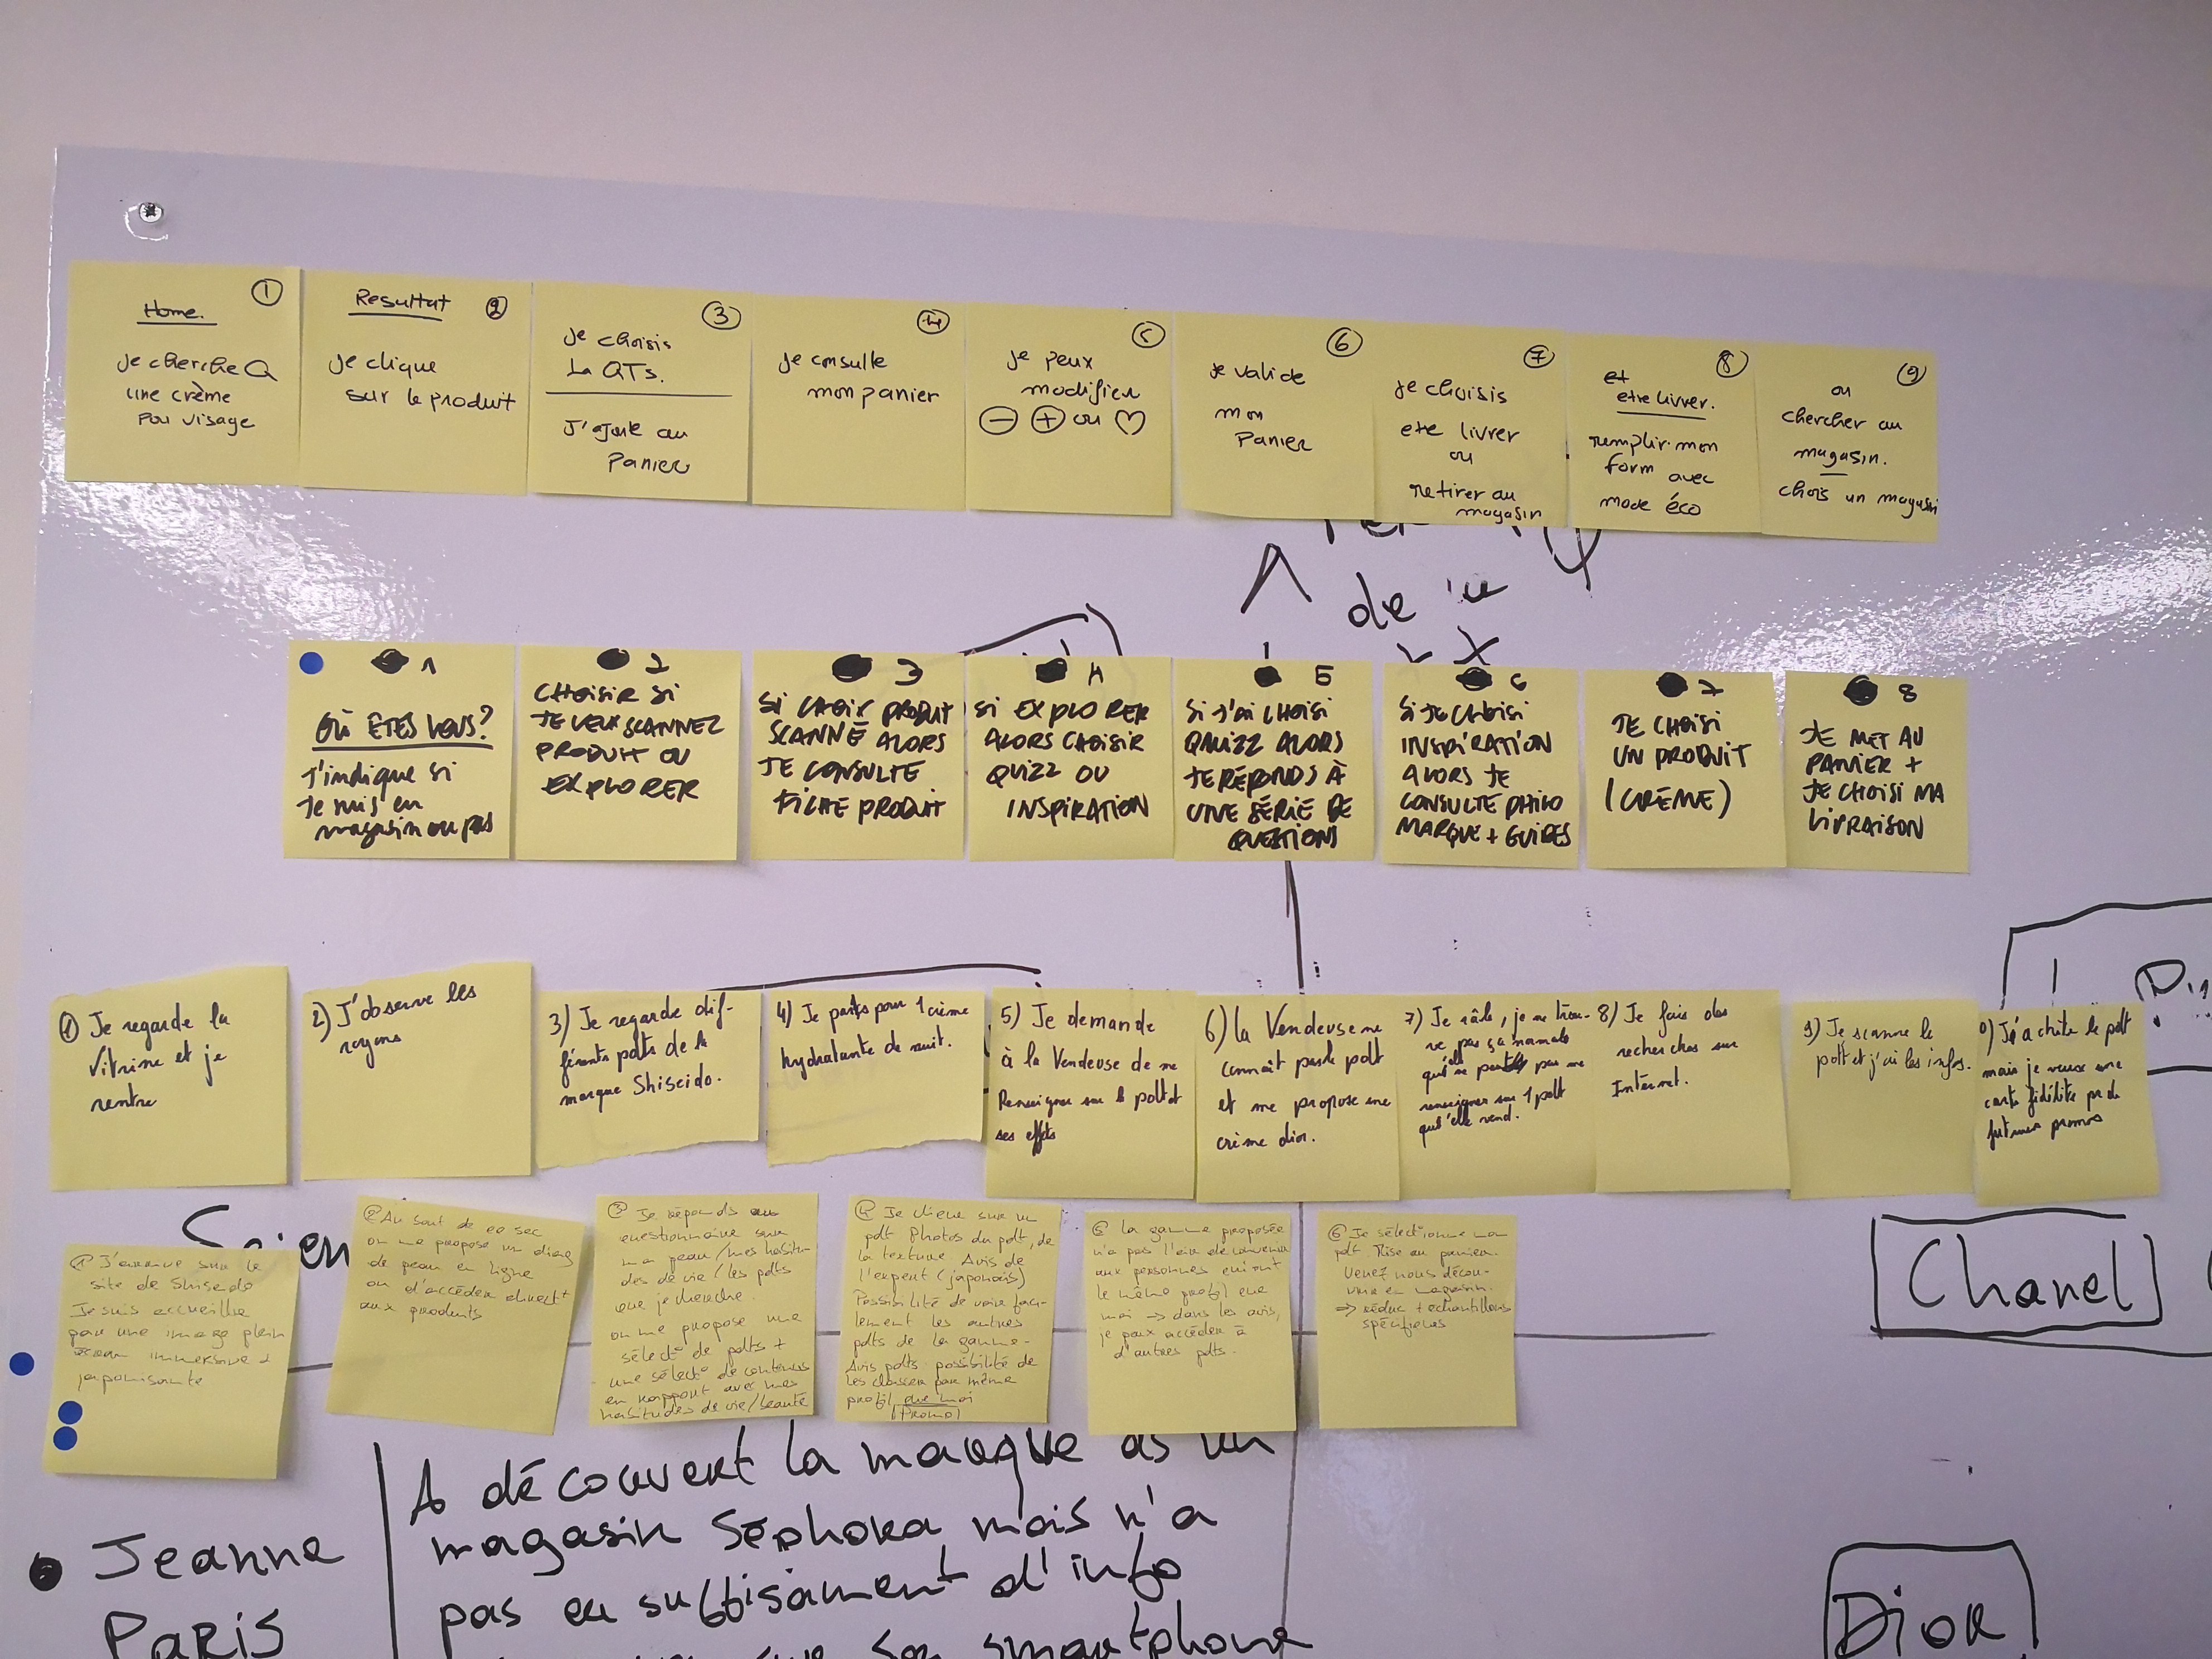 ①
Home.
je cherche
une crème
pou visage
②
Resultat
je clique
sur le produit
③
je choisis
La QTs.
J'ajoute au
Panier
④
je consulte
mon panier
⑤
je peux
modifier
⊖ ⊕ ou ♡
⑥
je valide
mon
Panier
⑦
je choisis
ete livrer
ou
retirer au
magasin
⑧
et
ete livrer.
remplir mon
form avec
mode éco
⑨
ou
chercher au
magasin.
chois un magasi
de
1
OÙ ÊTES VOUS?
J'indique si
je suis en
magasin ou pas
2
CHOISIR SI
JE VEUX SCANNEZ
PRODUIT OU
EXPLORER
3
SI CHOIX PRODUIT
SCANNÉ ALORS
JE CONSULTE
FICHE PRODUIT
4
SI EXPLORER
ALORS CHOISIR
QUIZZ OU
INSPIRATION
5
SI J'AI CHOISI
QUIZZ ALORS
JE RÉPONDS À
UNE SÉRIE DE
QUESTIONS
6
SI JE CHOISI
INSPIRATION
ALORS JE
CONSULTE PHILO
MARQUE + GUIDES
7
JE CHOISI
UN PRODUIT
(CRÈME)
8
JE MET AU
PANIER +
JE CHOISI MA
LIVRAISON
1) Je regarde la
Vitrine et je
rentre
2) J'observe les
rayons
3) Je regarde dif-
férents pdts de la
marque Shiseido.
4) Je pars pour 1 crème
hydratante de nuit.
5) Je demande
à la Vendeuse de me
Renseigner sur le pdt et
ses effets
6) la Vendeuse ne
connait pas le pdt
et me propose une
crème dior.
7) Je râle, je ne trou-
ve pas ça normale
qu'elle ne puisse pas me
renseigner sur 1 pdt
qu'elle vend.
8) Je fais des
recherches sur
Internet.
9) Je scanne le
pdt et j'ai les infos.
0) J'ai achité le pdt
mais je veux une
carte fidélité pr de
futures promos
① J'arrive sur le
site de Shiseido
Je suis accueillie
par une image plein
écran immersive &
japonisante
② Au bout de 20 sec
on me propose un diag
de peau en ligne
ou d'accéder direct+
aux produits
③ Je réponds au
questionnaire sur
ma peau / mes habitu-
des de vie / les pdts
que je cherche.
on me propose une
sélect° de pdts +
une sélect° de contenus
en rapport avec mes
habitudes de vie/beauté
④ Je clique sur un
pdt. Photos du pdt, de
la texture. Avis de
l'expert (japonais)
Possibilité de voir faci-
lement les autres
pdts de la gamme.
Avis pdts: possibilité de
les classer par même
profil que moi
(Promo)
⑤ La gamme proposée
n'a pas l'air de convenir
aux personnes qui ont
le même profil que
moi → dans les avis,
je peux accéder à
d'autres pdts.
⑥ Je sélectionne mon
pdt. Mise au panier.
Venez nous décou-
vrir en magasin.
⇒ réduc + échantillons
spécifiques
Chanel
A découvert la marque ds un
magasin Séphora mais n'a
pas eu suffisament d'info
son smartphone
Jeanne
PARIS
Dior